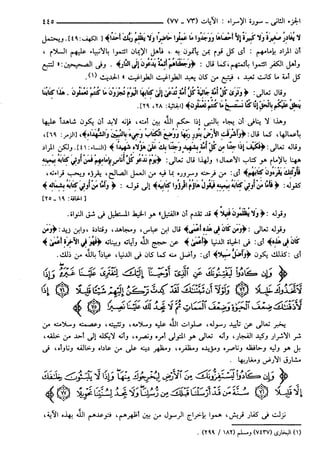 الجزء الثاني - سورة الإسراء: الآيات (٧٣ - ٧٧) ٤٤٥
لا يُغَادِرُ صَغِيرَةً وَلَا كَبِيرَةً إِلَّا أَحْصَاهَا وَوَجَدُوا مَا عَمِلُوا حَاضِرًا وَلَا يَظْلِمُ رَبُّكَ أَحَدًا﴾ [الكهف: ٤٩]. ويحتمل
أن المراد بإمامهم: أي كل قوم بمن يأتمون به، فأهل الإيمان ائتموا بالأنبياء عليهم السلام،
وأهل الكفر ائتموا بأئمتهم، كما قال: ﴿وَجَعَلْنَاهُمْ أَئِمَّةً يَدْعُونَ إِلَى النَّارِ﴾. وفي الصحيحين: « لتتبع
كل أمة ما كانت تعبد، فيتبع من كان يعبد الطواغيت الطواغيت » الحديث (١).
وقال تعالى: ﴿وَتَرَى كُلَّ أُمَّةٍ جَاثِيَةً كُلُّ أُمَّةٍ تُدْعَى إِلَى كِتَابِهَا الْيَوْمَ تُجْزَوْنَ مَا كُنْتُمْ تَعْمَلُونَ. هَذَا كِتَابُنَا
يَنْطِقُ عَلَيْكُمْ بِالْحَقِّ إِنَّا كُنَّا نَسْتَنْسِخُ مَا كُنْتُمْ تَعْمَلُونَ﴾ [الجاثية: ٢٨، ٢٩].
وهذا لا ينافي أن يجاء بالنبي إذا حكم الله بين أمته، فإنه لابد أن يكون شاهداً عليها
بأعمالها، كما قال: ﴿وَأَشْرَقَتِ الْأَرْضُ بِنُورِ رَبِّهَا وَوُضِعَ الْكِتَابُ وَجِيءَ بِالنَّبِيِّينَ وَالشُّهَدَاءِ﴾ [الزمر: ٦٩]،
وقاله تعالى: ﴿فَكَيْفَ إِذَا جِئْنَا مِنْ كُلِّ أُمَّةٍ بِشَهِيدٍ وَجِئْنَا بِكَ عَلَى هَؤُلَاءِ شَهِيدًا﴾ [النساء: ٤١]. ولكن المراد
هنا بالإمام هو كتاب الأعمال؛ ولهذا قال تعالى: ﴿يَوْمَ نَدْعُو كُلَّ أُنَاسٍ بِإِمَامِهِمْ فَمَنْ أُوتِيَ كِتَابَهُ بِيَمِينِهِ
فَأُولَئِكَ يَقْرَءُونَ كِتَابَهُمْ﴾ أي: من فرحته وسروره بما فيه من العمل الصالح، يقرؤه ويحب قراءته،
كقوله: ﴿فَأَمَّا مَنْ أُوتِيَ كِتَابَهُ بِيَمِينِهِ فَيَقُولُ هَاؤُمُ اقْرَءُوا كِتَابِيَهْ﴾ إلى قوله: ﴿وَأَمَّا مَنْ أُوتِيَ كِتَابَهُ بِشِمَالِهِ﴾
[الحاقة: ١٩ ـ ٢٥]
وقوله: ﴿وَلَا يُظْلَمُونَ فَتِيلًا﴾ قد تقدم أن «الفتيل» هو الخيط المستطيل في شق النواة.
وقوله تعالى: ﴿وَمَنْ كَانَ فِي هَذِهِ أَعْمَى﴾ قال ابن عباس، ومجاهد، وقتادة، وابن زيد: ﴿وَمَنْ
كَانَ فِي هَذِهِ﴾ أي: في الحياة الدنيا ﴿أَعْمَى﴾ عن حجج الله وآياته وبيناته ﴿فَهُوَ فِي الْآخِرَةِ أَعْمَى﴾
أي: كذلك يكون ﴿وَأَضَلُّ سَبِيلًا﴾ أي: وأضل منه كما كان في الدنيا، عياذاً بالله من ذلك.
﴿وَإِن كَادُوا لَيَفْتِنُونَكَ عَنِ الَّذِي أَوْحَيْنَا إِلَيْكَ لِتَفْتَرِيَ عَلَيْنَا غَيْرَهُ وَإِذًا
لَّاتَّخَذُوكَ خَلِيلًا ﴿٧٣﴾ وَلَوْلَا أَن ثَبَّتْنَاكَ لَقَدْ كِدتَّ تَرْكَنُ إِلَيْهِمْ شَيْئًا قَلِيلًا ﴿٧٤﴾
إِذًا لَّأَذَقْنَاكَ ضِعْفَ الْحَيَاةِ وَضِعْفَ الْمَمَاتِ ثُمَّ لَا تَجِدُ لَكَ عَلَيْنَا نَصِيرًا ﴿٧٥﴾﴾
يخبر تعالى عن تأييد رسوله، صلوات الله عليه وسلامه، وتثبيته، وعصمته وسلامته من
شر الأشرار وكيد الفجار، وأنه تعالى هو المتولي أمره ونصره، وأنه لايكله إلى أحد من خلقه،
بل هو وليه وحافظه وناصره ومؤيده ومظفره، ومظهر دينه على من عاداه وخالفه وناوأه، في
مشارق الأرض ومغاربها.
﴿وَإِن كَادُوا لَيَسْتَفِزُّونَكَ مِنَ الْأَرْضِ لِيُخْرِجُوكَ مِنْهَا وَإِذًا لَّا يَلْبَثُونَ خِلَافَكَ
إِلَّا قَلِيلًا ﴿٧٦﴾ سُنَّةَ مَن قَدْ أَرْسَلْنَا قَبْلَكَ مِن رُّسُلِنَا وَلَا تَجِدُ لِسُنَّتِنَا تَحْوِيلًا ﴿٧٧﴾﴾
نزلت في كفار قريش، هموا بإخراج الرسول من بين أظهرهم، فتوعدهم الله بهذه الآية،
(١) البخاري (٧٤٣٧) ومسلم (١٨٢ / ٢٩٩).